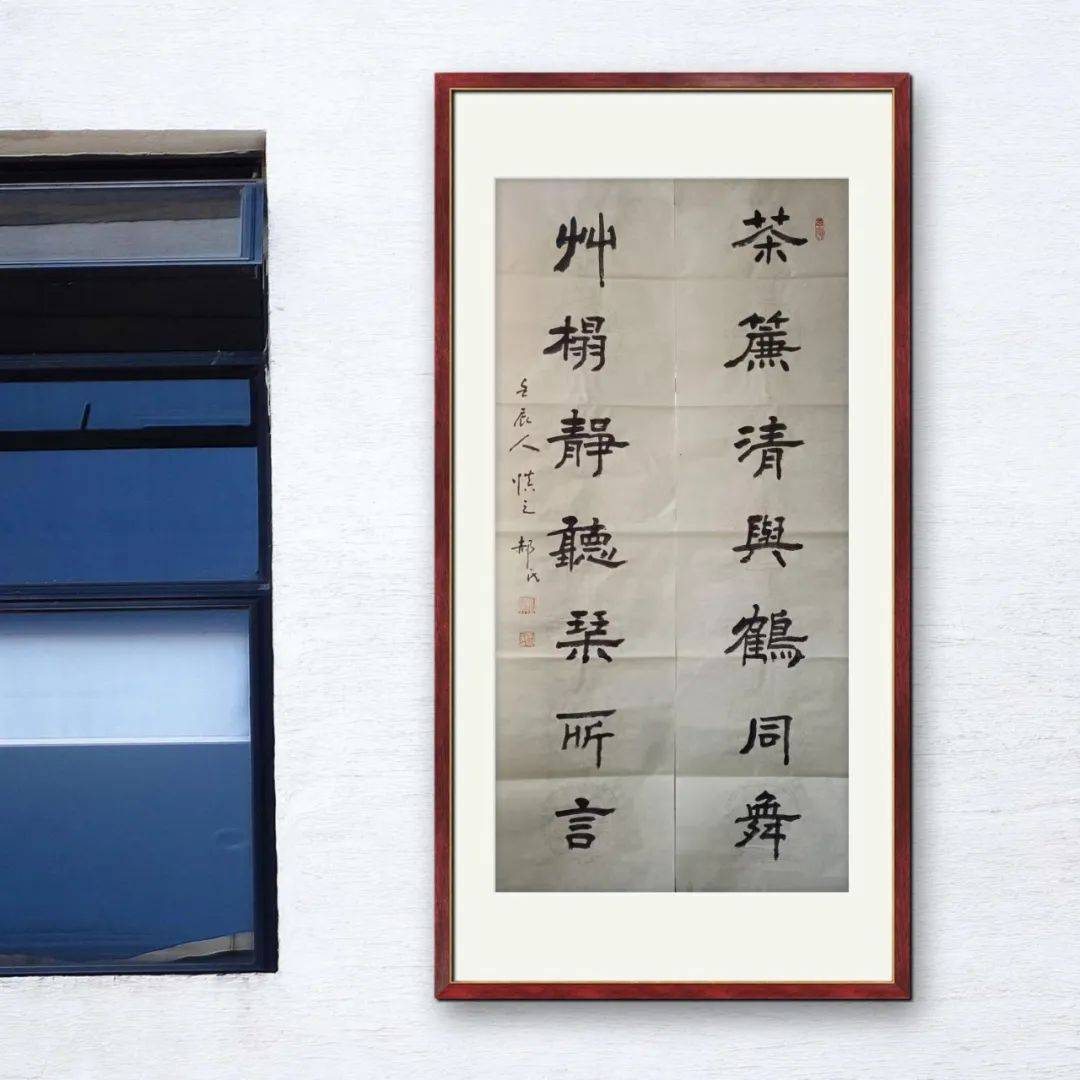 茶簾清與鶴同舞
艸榻靜聽琹所言
壬辰人慎之郝氏